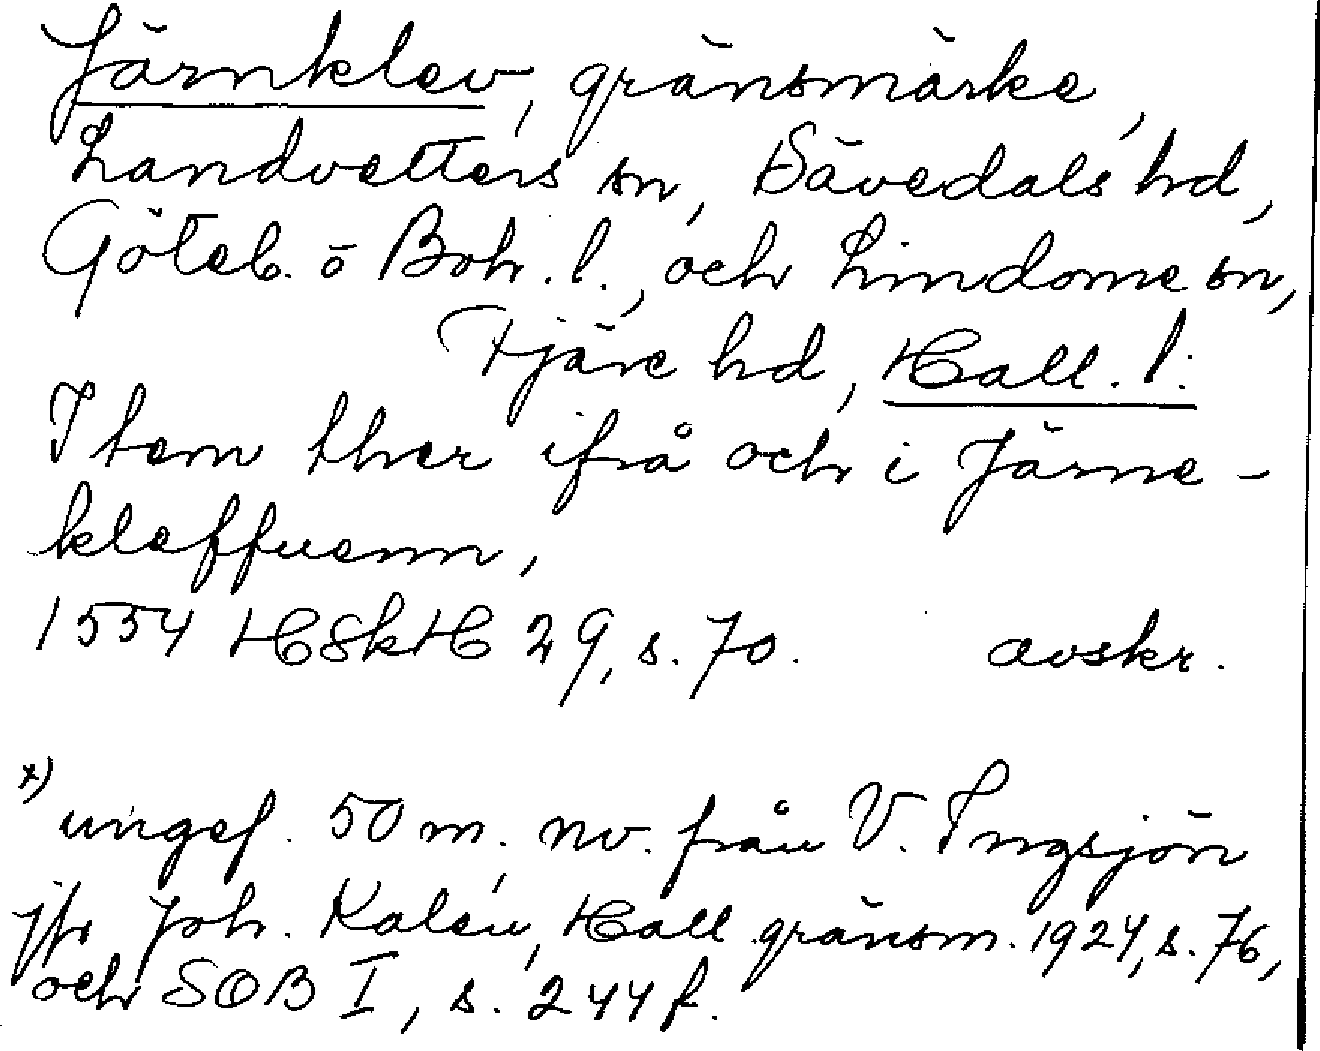 Järnklev, gränsmärke,
Landvetters sn, Sävedals hd,
Göteb. o Boh. l., och Lindome sn,
Fjäre hd, Hall. l.
Item ther ifrå och i Järne-
kleffuenn,
1554 HSkH 29, s. 70. avskr.
x) ungef. 50 m. nv. från V. Ingsjön
jfr Joh. Kalén, Hall gränsm. 1924, s. 76,
och SOB I, s. 244 f.